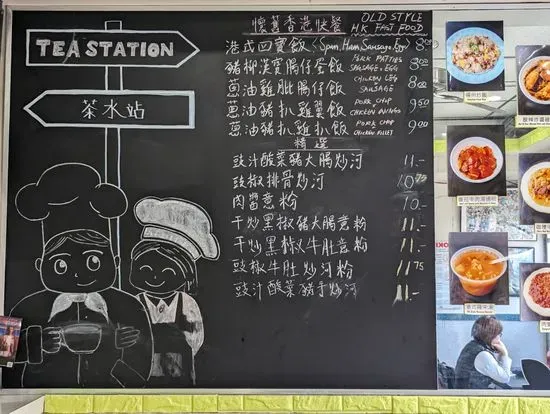 TEA STATION
茶水站
懷舊香港快餐 OLD STYLE HK FAST FOOD
港式四寶飯 (Spam, Ham, Sausage, Egg) 8.00
豬柳漢寶腸仔蛋飯 PORK PATTIES SAUSAGE, EGG 8.00
蔥油雞肶腸仔飯 CHICKEN LEG SAUSAGE 8.00
蔥油豬扒雞翼飯 PORK CHOP CHICKEN WINGS 9.50
蔥油豬扒雞扒飯 PORK CHOP CHICKEN FILLET 9.00
精選
豉汁酸菜豬大腸炒河 11.-
豉椒排骨炒河 10.75
肉醬意粉 10.-
干炒黑椒豬大腸意粉 11.-
干炒黑椒牛肚意粉 11.-
豉椒牛肚炒河粉 11.75
豉汁酸菜豬手炒河 11.-